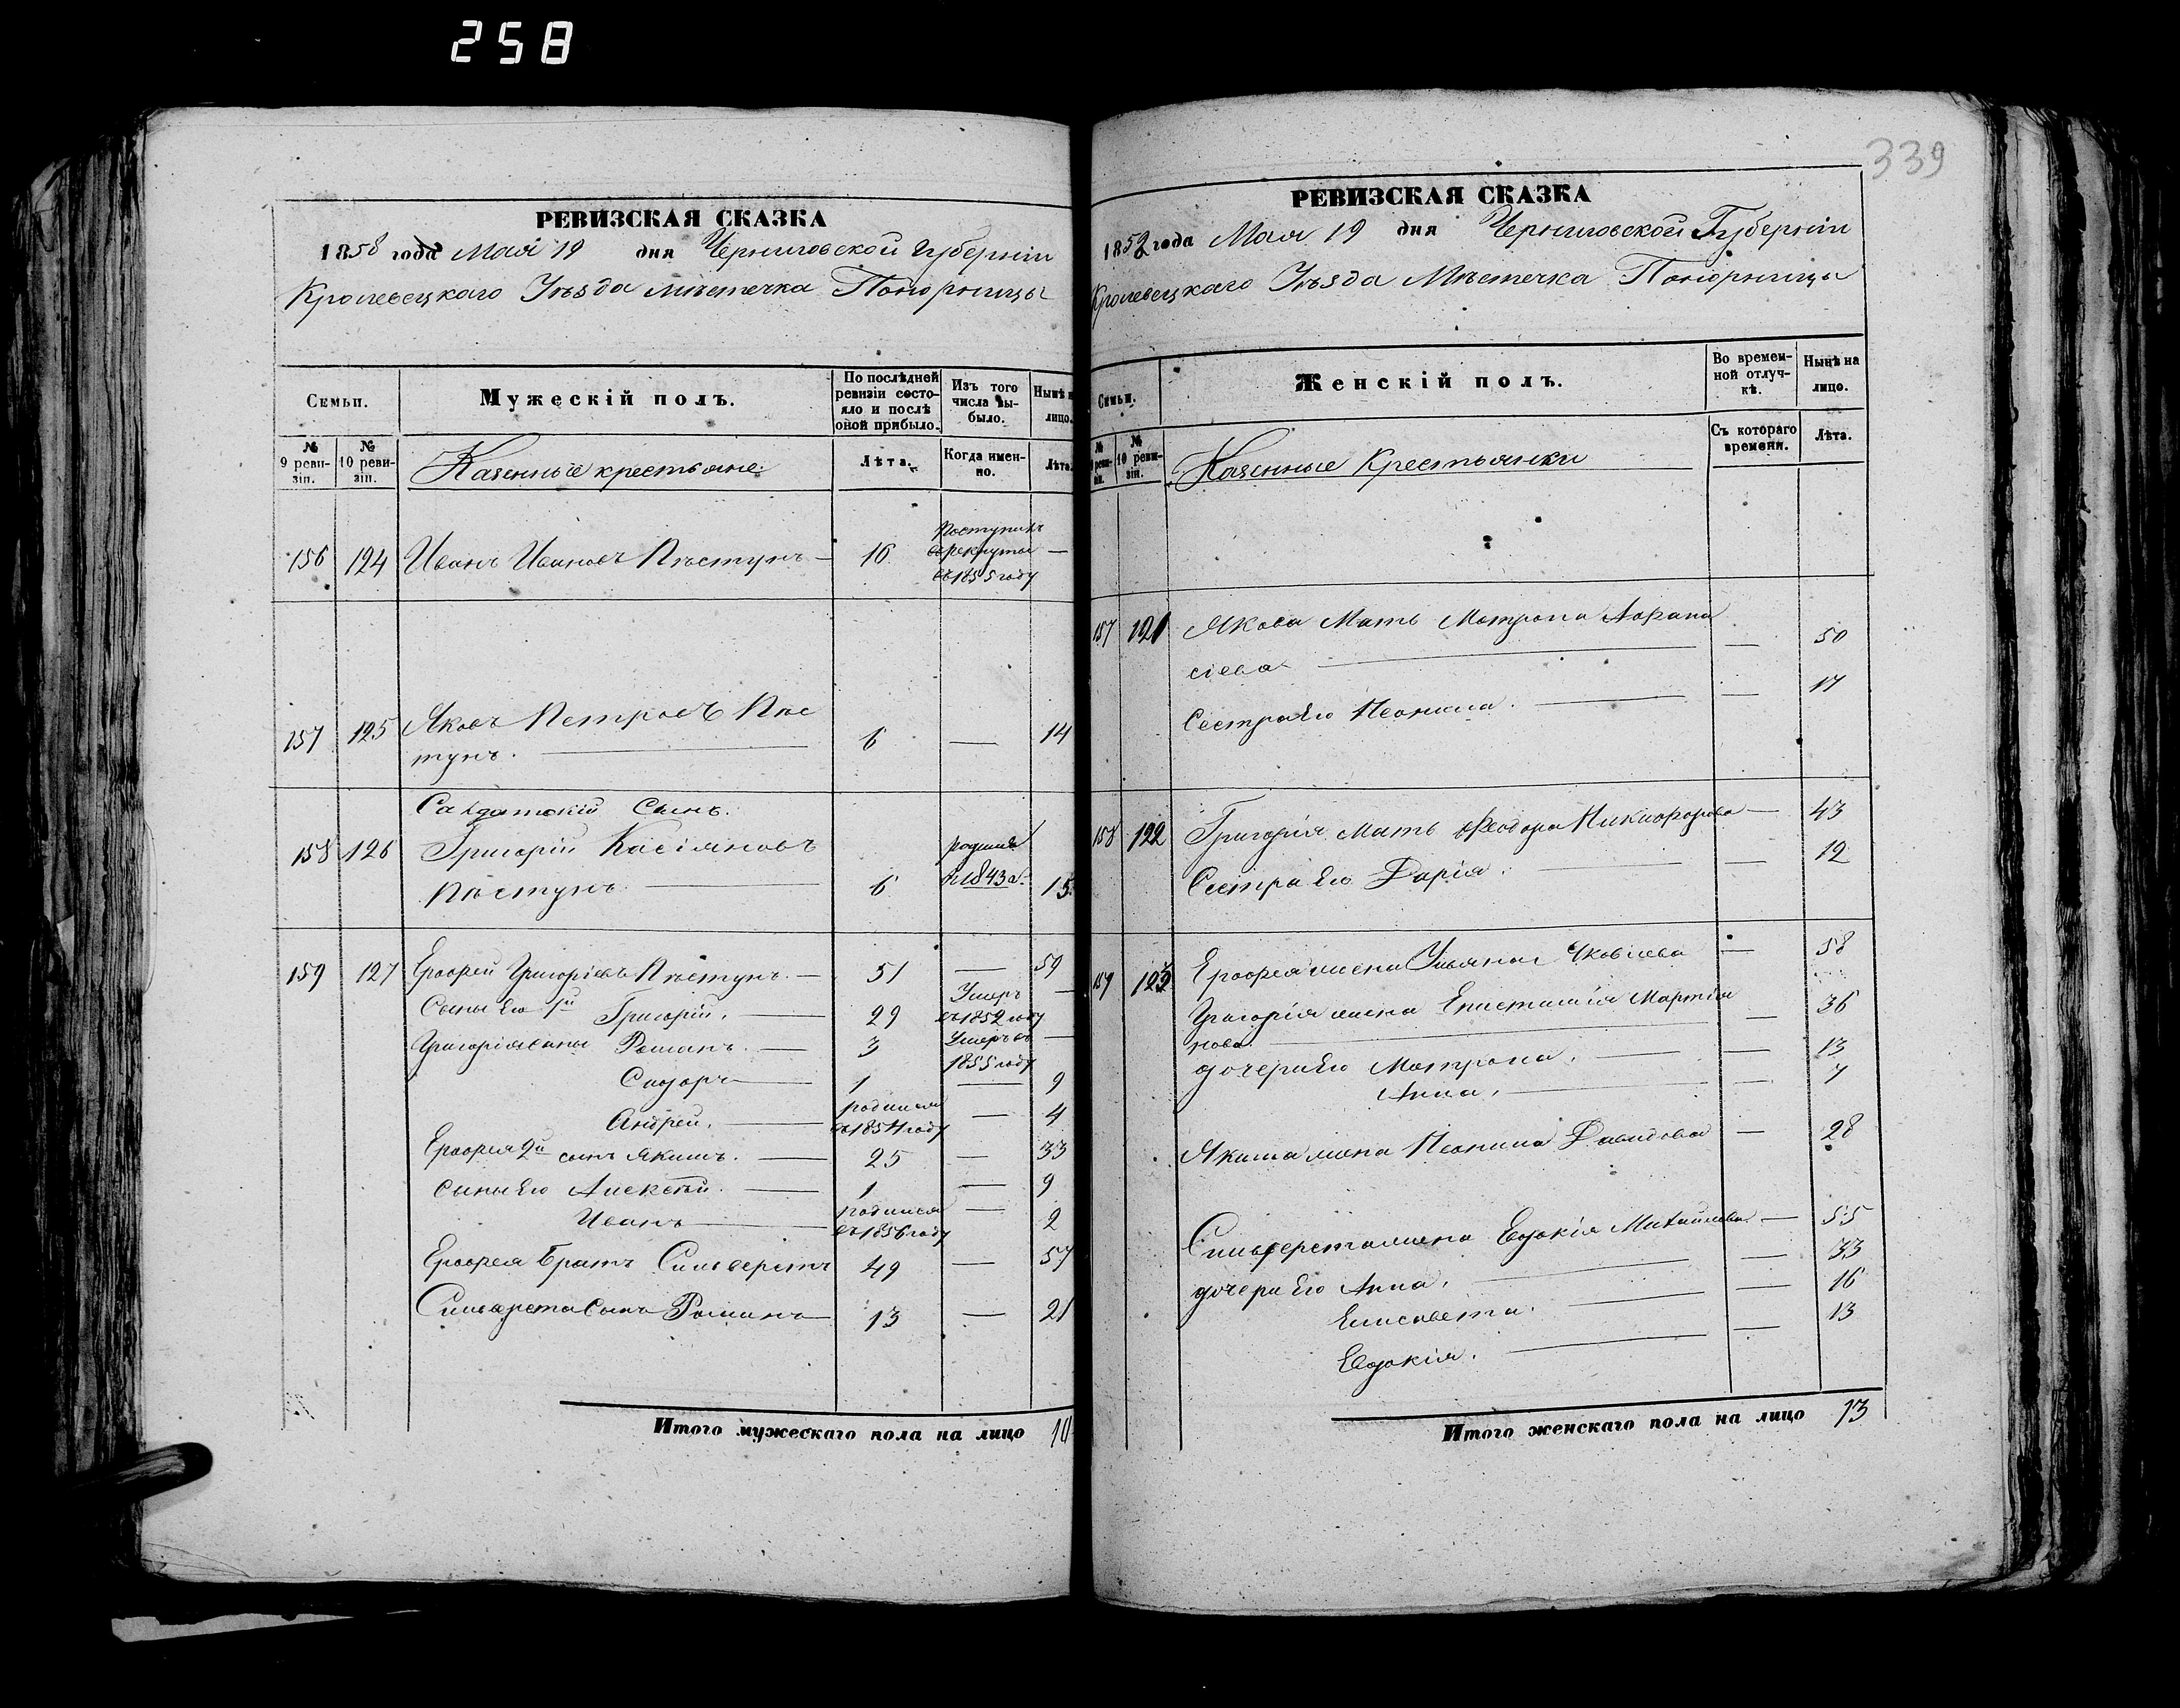 258
РЕВИЗСКАЯ СКАЗКА
1858 года Мая 19 дня Черниговской Губерніи
Кролевецкаго Уѣзда Мѣстечка Понорницы
Семьи.
Мужескій полъ.
По послѣдней ревизіи состояло и послѣ оной прибыло.
Изъ того числа выбыло.
Нынѣ н
лицо.
№ 9 ревизіи.
№ 10 ревизіи.
Казенные крестьяне:
Лѣта.
Когда именно.
Лѣта.
156 124 Иванъ Ивановъ Пѣстунъ — 16 Поступилъ въ рекруты въ 1855 году —
157 125 Яковъ Петровъ Пѣс
тунъ. — 6 — 14
Салдатскій Сынъ.
158 126 Григорій Касіяновъ
Пѣстунъ — 6 1843 15
159 127 Ерофей Григоріевъ Пѣстунъ. — 51 — 59
Сыны Его 1й Григорій. — 29 Умеръ въ 1852 году —
Григорія сыны Романъ. — 3 Умеръ въ 1855 году —
Сидоръ — 1 — 9
Андрей. — родился въ 1854 году — 4
Ерофея 2й сынъ Якимъ. — 25 — 33
Сыны Его Алексѣй. — 1 — 9
Иванъ — родился въ 1856 году — 2
Ерофея Братъ Сильверстъ 49 — 57
Сильверста Сынъ Романъ — 13 — 21
Итого мужескаго пола на лицо 10
339
РЕВИЗСКАЯ СКАЗКА
185 года Мая 19 дня Черниговской Губерніи
Кролевецкаго Уѣзда Мѣстечка Понорницы
Семьи.
Женскій полъ.
Во временной отлучкѣ.
Нынѣ на лицо.
№ 10 ревизіи.
Казенные Крестьянки
Съ котораго времени.
Лѣта.
157 121 Якова Мать Матрона Афана
сіева — — 50
Сестра Его Неонила. — — 17
158 122 Григорія Мать Феодора Никифорова — 43
Сестра Его Дарія. — — 12
159 123 Ерофея жена Ульяна Яковлева — 58
Григорія жена Епистимія Мартіа
нова. — — 36
дочери Его Матрона. — — 13
Анна. — — 7
Якима жена Неонила Давидова — 28
Сильверста жена Евдокія Михайлова — 55
дочери Его Анна. — — 33
Елисавета. — — 16
Евдокія. — — 13
Итого женскаго пола на лицо 13